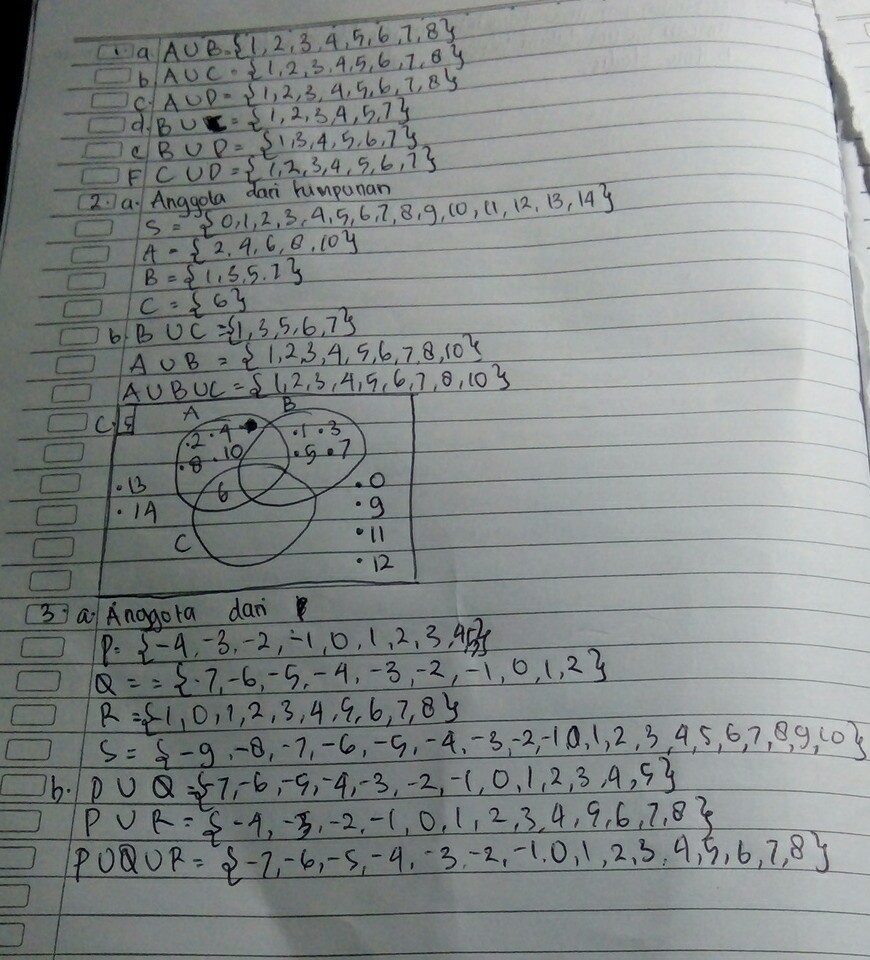 1. a A∪B={1,2,3,4,5,6,7,8}
b A∪C={1,2,3,4,5,6,7,8}
c. A∪D={1,2,3,4,5,6,7,8}
d. B∪C={1,2,3,4,5,7}
e B∪D={1,3,4,5,6,7}
F C∪D={1,2,3,4,5,6,7}
2. a. Anggota dari humpunan
S = {0,1,2,3,4,5,6,7,8,9,10,11,12,13,14}
A = {2,4,6,8,10}
B = {1,3,5,7}
C = {6}
b. B∪C={1,3,5,6,7}
A∪B={1,2,3,4,5,6,7,8,10}
A∪B∪C={1,2,3,4,5,6,7,8,10}
c. S A B
.2 .4 .1 .3
.8 .10 .5 .7
.13 6 .0
.14 .9
C .11
.12
3. a. Anggota dari
P= {-4,-3,-2,-1,0,1,2,3,4,5}
Q = = {-7,-6,-5,-4,-3,-2,-1,0,1,2}
R ={1,0,1,2,3,4,5,6,7,8}
S = {-9,-8,-7,-6,-5,-4,-3,-2,-1 0,1,2,3,4,5,6,7,8,9,10}
b. P∪Q={-7,-6,-5,-4,-3,-2,-1,0,1,2,3,4,5}
P∪R={-4,-3,-2,-1,0,1,2,3,4,5,6,7,8}
P∪Q∪R={-7,-6,-5,-4,-3,-2,-1,0,1,2,3,4,5,6,7,8}